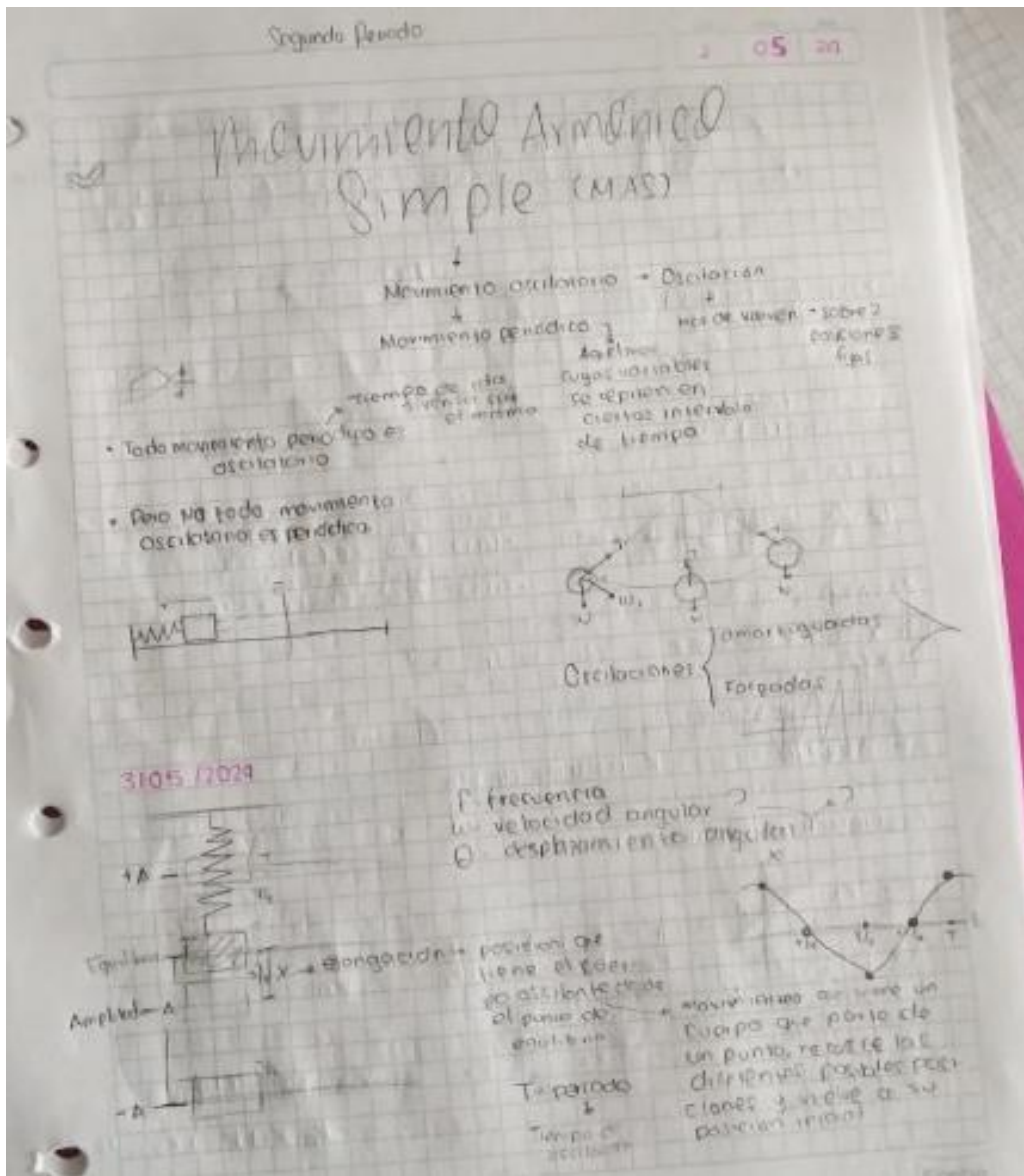 Segundo Periodo
2 05
Movimiento Armónico
Simple (MAS)
Movimiento oscilatorio → Oscilación
Movimiento periódico
mov de vaivén → sobre 2
posiciones
fijas
Aquellos
cuyas variables
se repiten en
ciertos intervalo
de tiempo
tiempo de
el mismo
• Todo movimiento periodico es
oscilatorio
• Pero No todo movimiento
oscilatorio es periódico
Oscilaciones
amortiguadas
Forzadas
3105/2024
f frecuencia
w velocidad angular
θ desplazamiento angular
+A
Equilibrio
Amplitud → A
-A
x → elongación → posición que
tiene el
oscilante desde
el punto de
equilibrio
T → periodo
Tiempo
oscilación
x
t
movimiento que tiene un
cuerpo que parte de
un punto, recorre las
diferentes posibles posi
ciones y vuelve a su
posición inicial